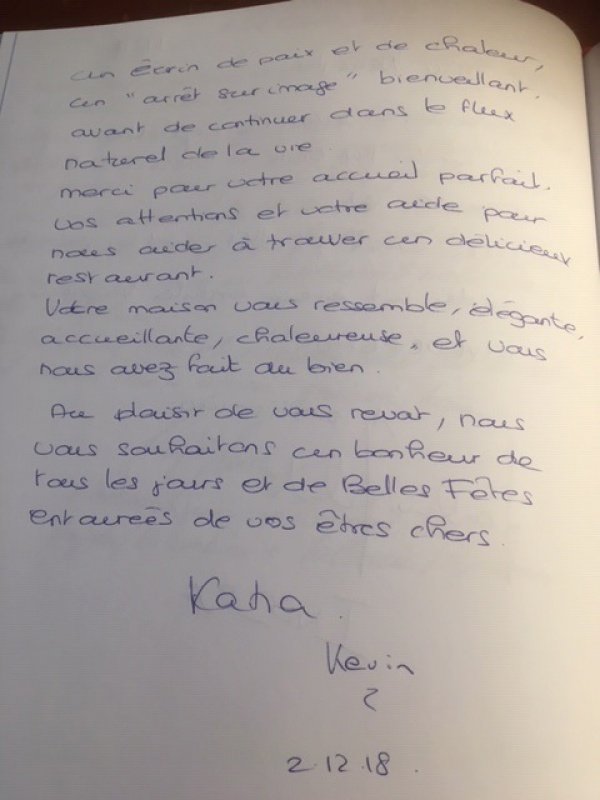 un écrin de paix et de chaleur,
un "arrêt sur image" bienveillant,
avant de continuer dans le flux
naturel de la vie.
merci pour votre accueil parfait,
vos attentions et votre aide pour
nous aider à trouver un délicieux
restaurant.
Votre maison vous ressemble, élégante,
accueillante, chaleureuse, et vous
nous avez fait du bien.
Au plaisir de vous revoir, nous
vous souhaitons un bonheur de
tous les jours et de Belles Fêtes
entourées de vos êtres chers.
Kevin
2.12.18.